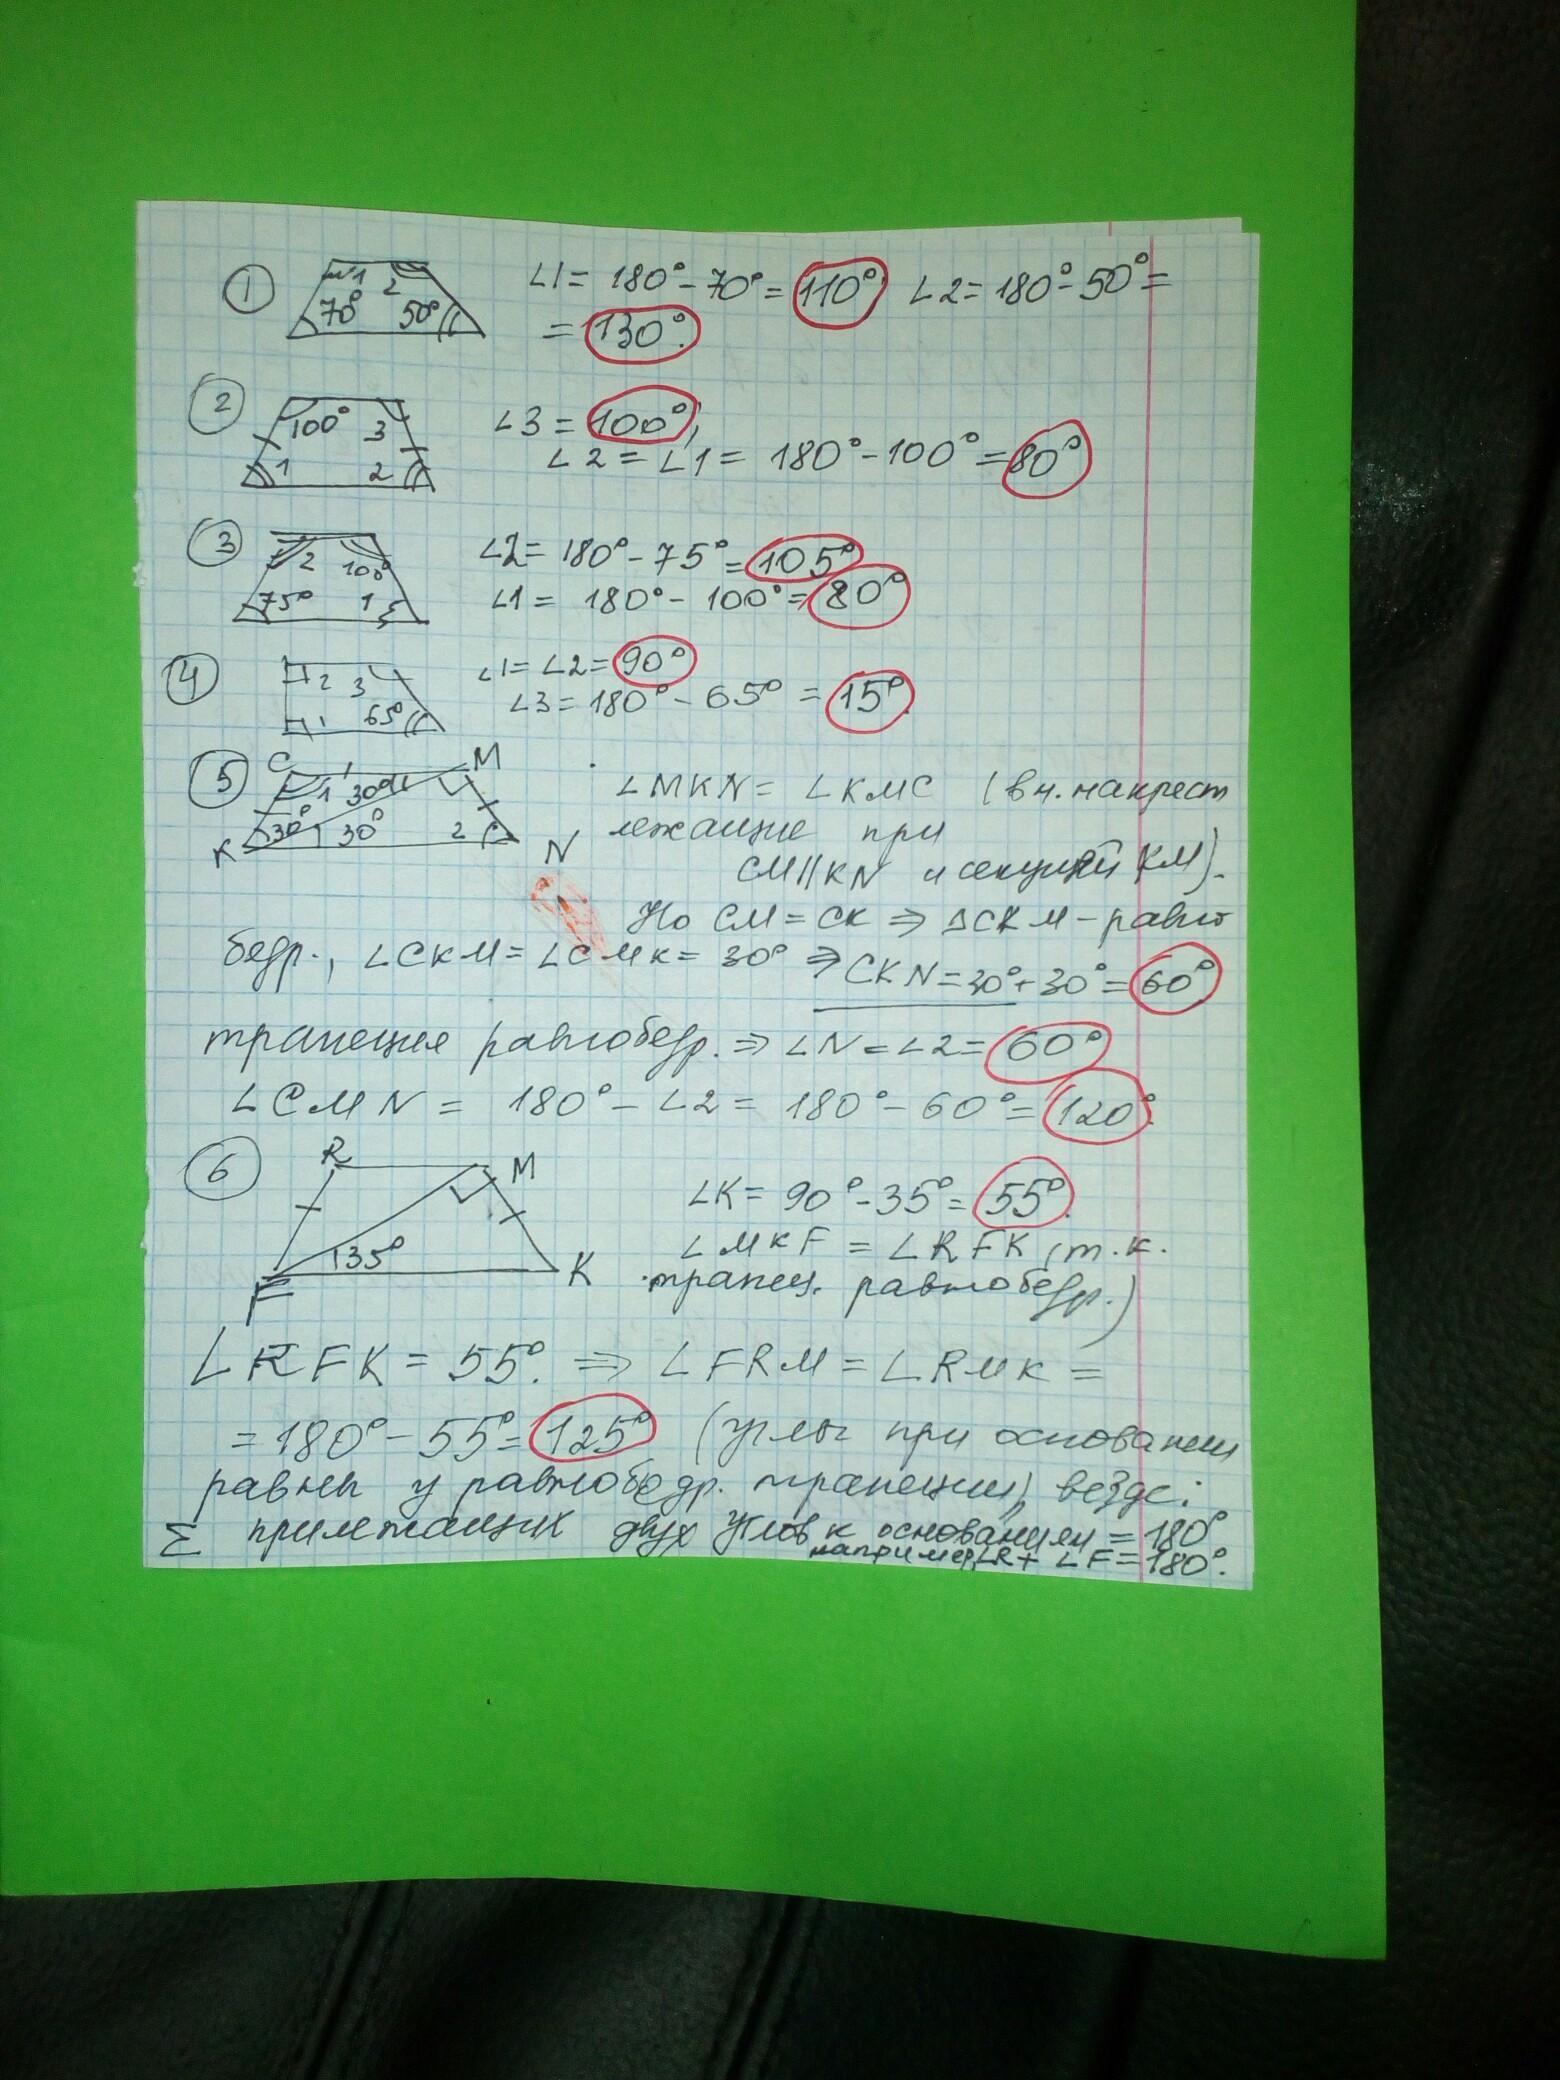 ① 1 2 70° 50° ∠1 = 180° - 70° = 110° ∠2 = 180° - 50° =
= 130°.
② 100° 3 1 2 ∠3 = 100°;
∠2 = ∠1 = 180° - 100° = 80°
③ 2 100° 75° 1 ∠2 = 180° - 75° = 105°
∠1 = 180° - 100° = 80°
④ 2 3 1 65° ∠1 = ∠2 = 90°
∠3 = 180° - 65° = 15°.
⑤ C M 1 30° 30° 30° 2 K N ∠MKN = ∠KMC (вн. накрест
лежащие при
CM || KN и секущей KM).
Но CM = CK ⇒ ΔCKM - равно
бедр., ∠CKM = ∠CMK = 30° ⇒ CKN = 30° + 30° = 60°
трапеция равнобедр. ⇒ ∠N = ∠2 = 60°
∠CMN = 180° - ∠2 = 180° - 60° = 120°.
⑥ R M 35° F K ∠K = 90° - 35° = 55°.
∠MKF = ∠RFK, т.к.
трапец. равнобедр.)
∠RFK = 55°. ⇒ ∠FRM = ∠RMK =
= 180° - 55° = 125° (углы при основании
равны у равнобедр. трапеции), везде:
Σ прилежащих двух углов к основаниям = 180°
например, ∠R + ∠F = 180°.